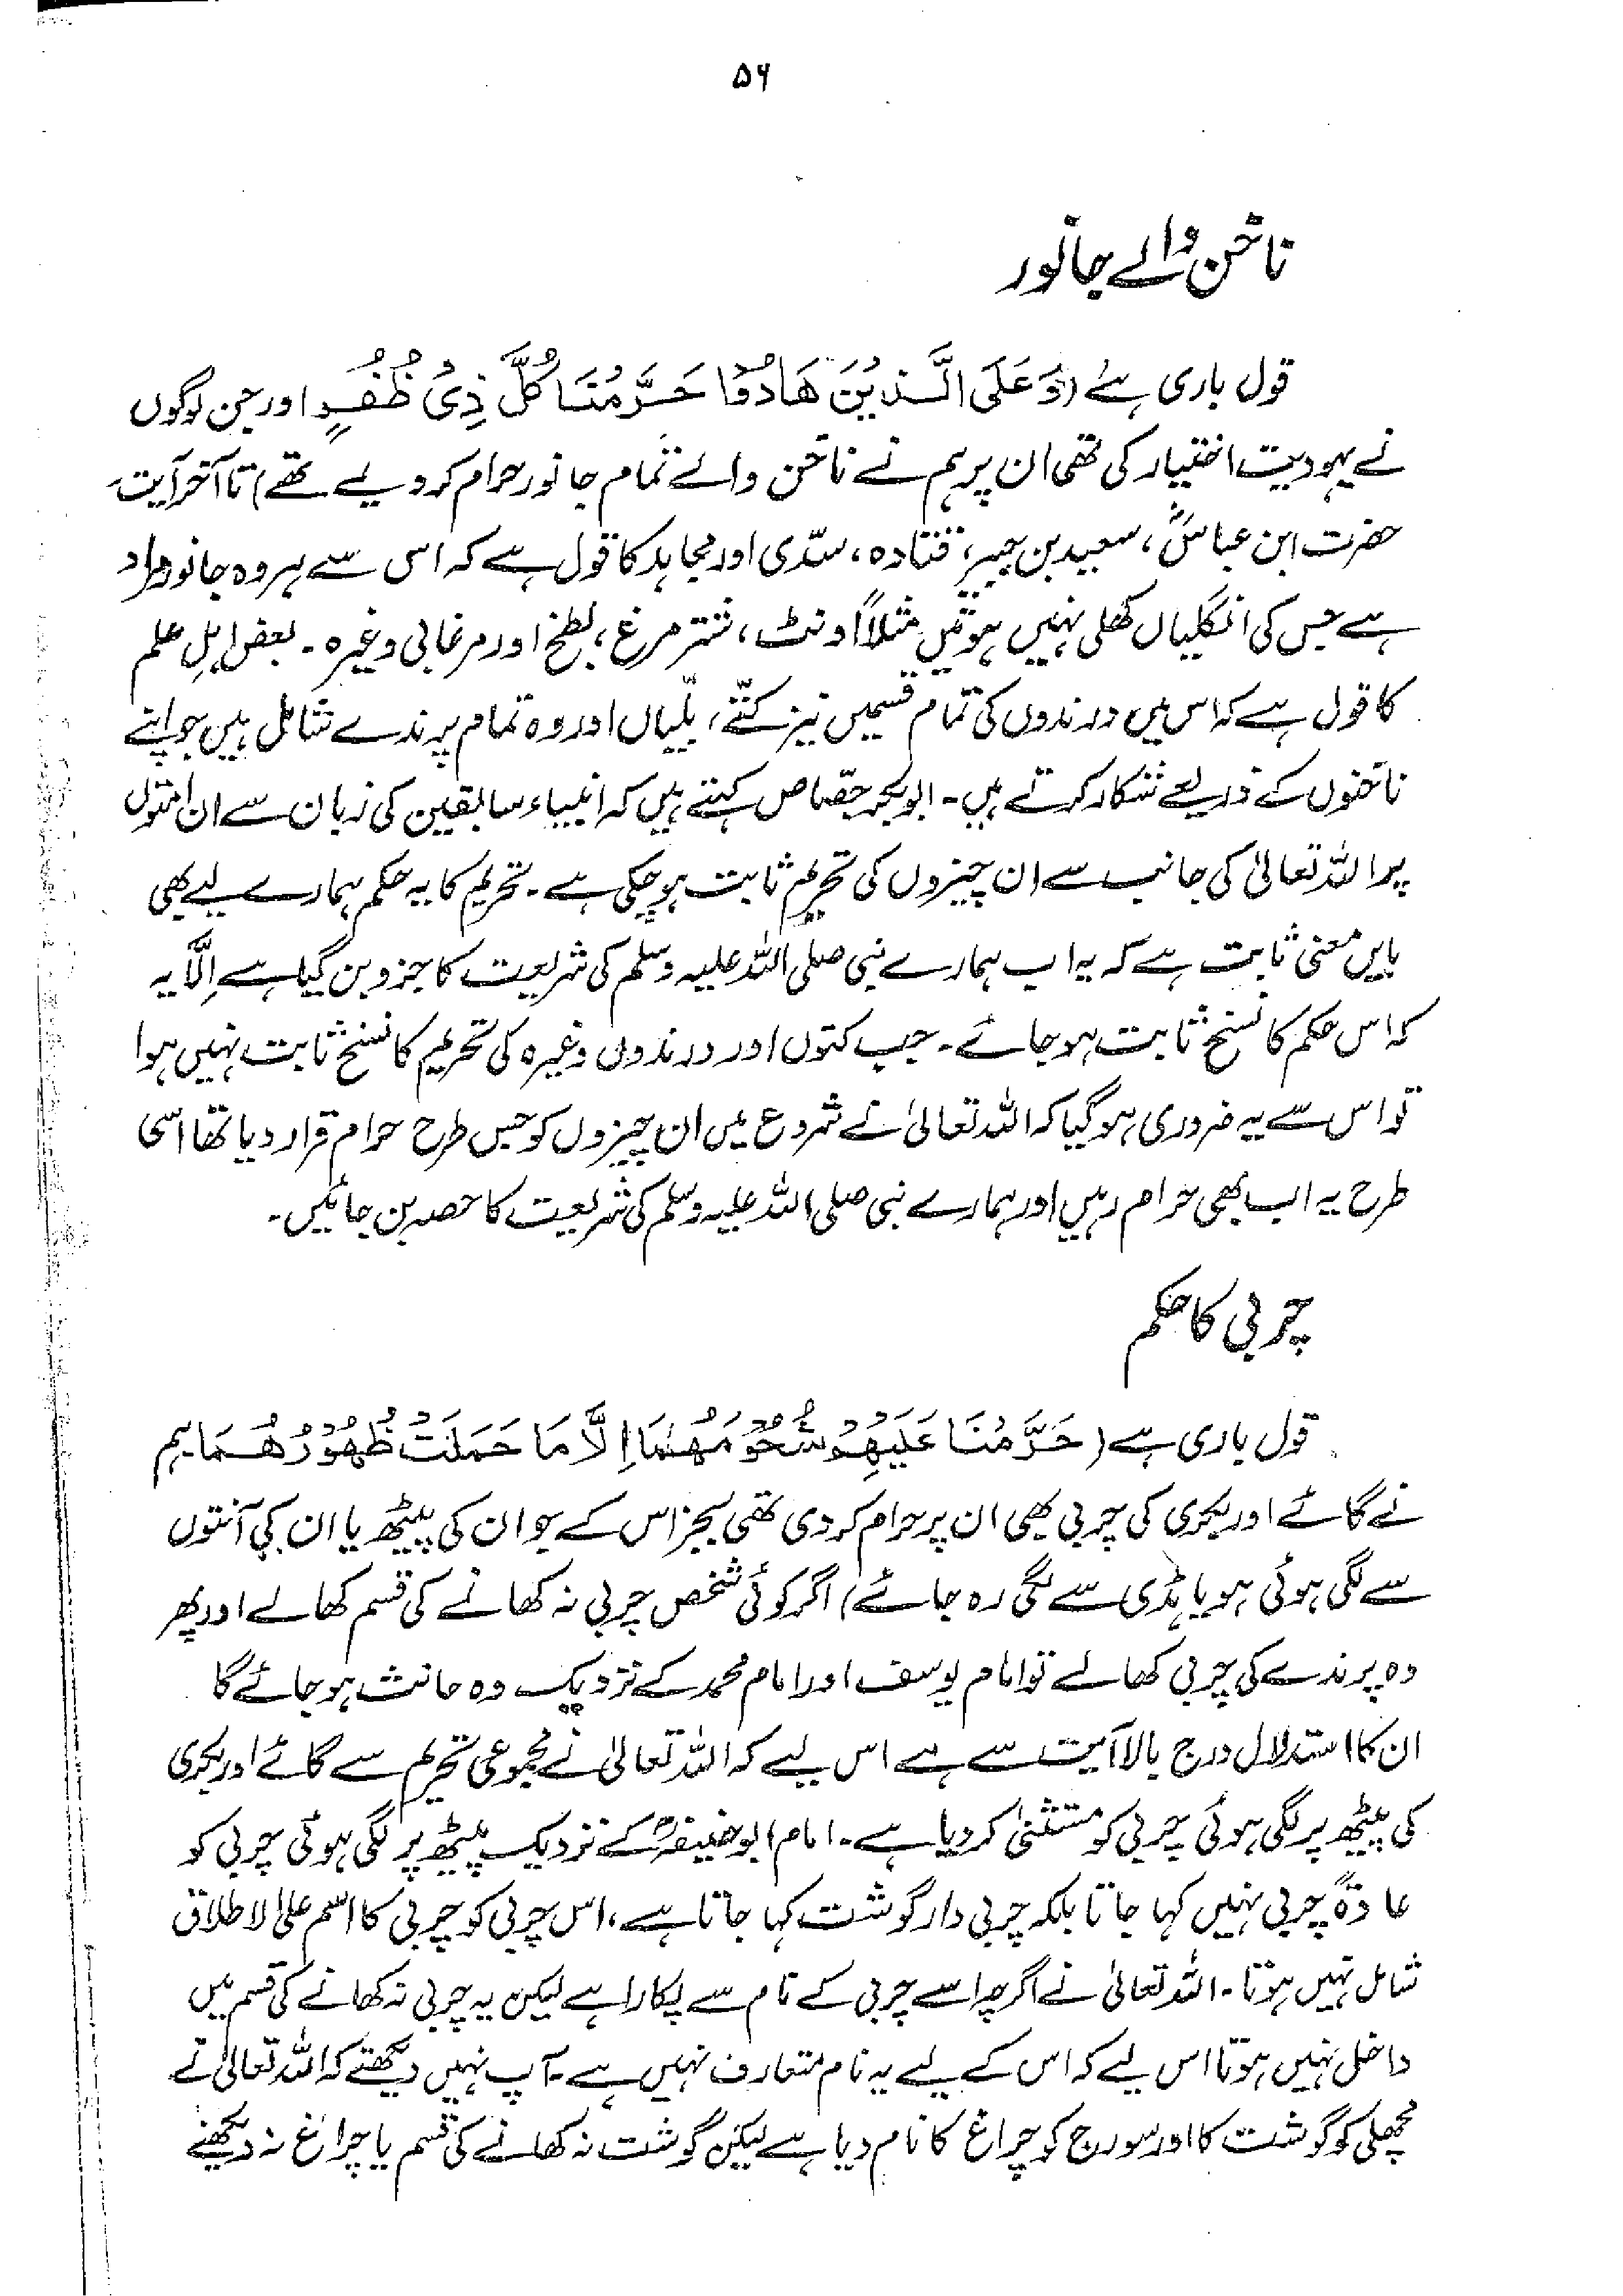 ۵۶
ناخن والے جانور
قول باری ہے (وَعَلَى الَّذِيْنَ هَادُوْا حَرَّمْنَا كُلَّ ذِىْ ظُفُرٍ اور جن لوگوں
نے یہودیت اختیار کی تھی ان پر ہم نے ناخن والے تمام جانور حرام کر دیے تھے) تا آخر آیت۔
حضرت ابن عباسؓ، سعید بن جبیر، قتادہ، سدّی اور مجاہد کا قول ہے کہ اس سے ہر وہ جانور مراد
ہے جس کی انگلیاں کھلی نہیں ہوتیں مثلاً اونٹ، شتر مرغ، بطخ اور مرغابی وغیرہ۔ بعض اہلِ علم
کا قول ہے کہ اس میں درندوں کی تمام قسمیں نیز کتّے، بلّیاں اور وہ تمام پرندے شامل ہیں جو اپنے
ناخنوں کے ذریعے شکار کرتے ہیں۔ ابوبکر جصّاص کہتے ہیں کہ انبیاء سابقین کی زبان سے ان امتوں
پر اللہ تعالیٰ کی جانب سے ان چیزوں کی تحریم ثابت ہو چکی ہے۔ تحریم کا یہ حکم ہمارے لیے بھی
بایں معنی ثابت ہے کہ یہ اب ہمارے نبی صلی اللہ علیہ وسلم کی شریعت کا جزو بن گیا ہے اِلّا یہ
کہ اس حکم کا نسخ ثابت ہو جائے۔ جب کتوں اور درندوں وغیرہ کی تحریم کا نسخ ثابت نہیں ہوا
تو اس سے یہ ضروری ہو گیا کہ اللہ تعالیٰ نے شروع میں ان چیزوں کو جس طرح حرام قرار دیا تھا اسی
طرح یہ اب بھی حرام رہیں اور ہمارے نبی صلی اللہ علیہ وسلم کی شریعت کا حصہ بن جائیں۔
چربی کا حکم
قول باری ہے (حَرَّمْنَا عَلَيْهِمْ شُحُوْمَهُمَا اِلَّا مَا حَمَلَتْ ظُهُوْرُهُمَا ہم
نے گائے اور بکری کی چربی بھی ان پر حرام کر دی تھی بجز اس کے جو ان کی پیٹھ یا ان کی آنتوں
سے لگی ہوئی ہو یا ہڈی سے لگی رہ جائے) اگر کوئی شخص چربی نہ کھانے کی قسم کھالے اور پھر
وہ پرندے کی چربی کھالے تو امام یوسف اور امام محمد کے نزدیک وہ حانث ہو جائے گا
ان کا استدلال درج بالا آیت سے ہے اس لیے کہ اللہ تعالیٰ نے مجموعی تحریم سے گائے اور بکری
کی پیٹھ پر لگی ہوئی چربی کو مستثنیٰ کر دیا ہے۔ امام ابوحنیفہؒ کے نزدیک پیٹھ پر لگی ہوئی چربی کو
عادۃً چربی نہیں کہا جاتا بلکہ چربی دار گوشت کہا جاتا ہے، اس چربی کو چربی کا اسم علی الاطلاق
شامل نہیں ہوتا۔ اللہ تعالیٰ نے اگرچہ اسے چربی کے نام سے پکارا ہے لیکن یہ چربی نہ کھانے کی قسم میں
داخل نہیں ہوتا اس لیے کہ اس کے لیے یہ نام متعارف نہیں ہے۔ آپ نہیں دیکھتے کہ اللہ تعالیٰ نے
مچھلی کو گوشت کا اور سورج کو چراغ کا نام دیا ہے لیکن گوشت نہ کھانے کی قسم یا چراغ نہ دیکھنے